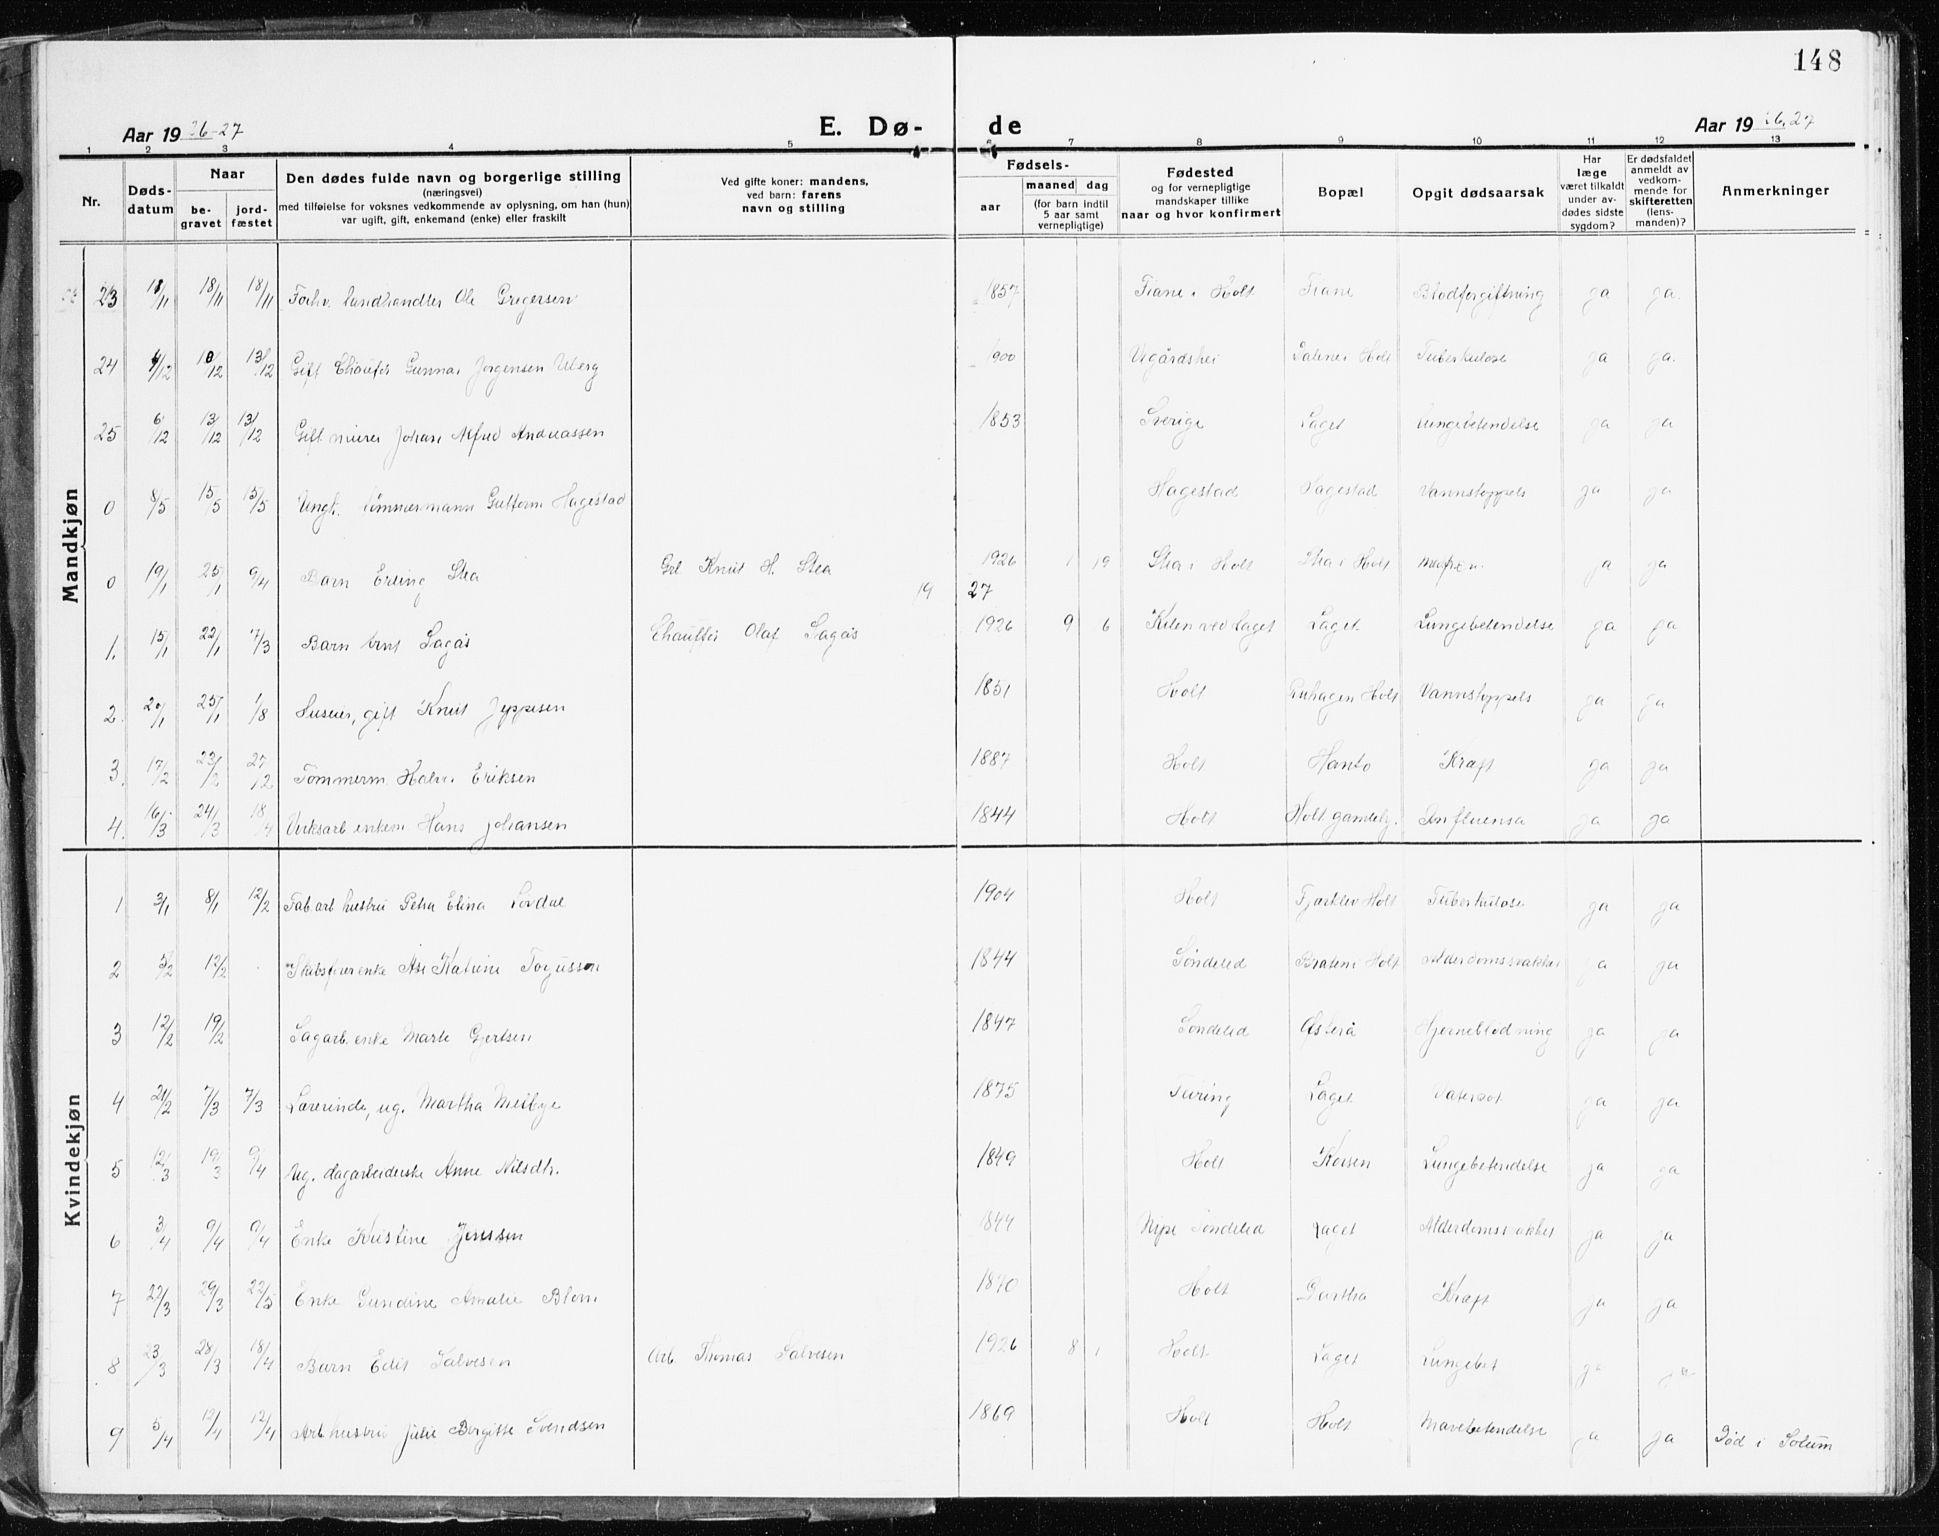 148
Aar 19 26-27
E. Dø-
de
Aar 19 26, 27
1 2 3 4 5 6 7 8 9 10 11 12 13
Nr.
Døds-
datum
Naar
be-
gravet
jord-
fæstet
Den dødes fulde navn og borgerlige stilling
(næringsvei)
med tilføielse for voksnes vedkommende av oplysning, om han (hun)
var ugift, gift, enkemand (enke) eller fraskilt
Ved gifte koner: mandens,
ved barn: farens
navn og stilling
Fødsels-
aar
maaned dag
(for barn indtil
5 aar samt
vernepligtige)
Fødested
og for vernepligtige
mandskaper tillike
naar og hvor konfirmert
Bopæl
Opgit dødsaarsak
Har
læge
været tilkaldt
under av-
dødes sidste
sygdom?
Er dødsfaldet
anmeldt av
vedkom-
mende for
skifteretten
(lens-
manden)?
Anmerkninger
Mandkjøn
23 18/11 18/11 Forhv. landhandler Ole Gregersen 1857 Fiane i Holt Fiane Blodforgiftning ja ja.
24 13/12 Gift Chaufør Gunnar Jørgensen Uberg 1900 Vegårdshei Holt Tuberkulose ja ja.
25 6/12 13/12 13/12 Gift murer Johan Alfred Andreassen 1853 Sverige Laget Lungebetendelse ja ja
0 8/5 15/5 15/5 Ungk. tømmermann Guttorm Hagestad Hagestad Hagestad Vannstoppels ja ja
0 19/1 25/1 9/4 Barn Erling Stea Knut H. Stea 1926 1 19 Stea i Holt Stea i Holt ja ja
19 27
1. 15/1 22/1 7/3 Barn Arnt Lagås Chauffør Olaf Lagås 1926 9 6 Kilen ved Laget Laget Lungebetendelse ja ja
2. 20/1 25/1 1/8 Huseier, gift Knut Jeppesen 1851 Holt Holt Vannstoppels ja ja
3. 17/2 23/2 27/2 Tømmerm. Halvor Eriksen 1887 Holt Hanto Kræft ja ja
4. 16/3 24/3 18/4 Verksarb enkem Hans Johansen 1844 Holt Holt gamlehj. Influensa ja ja
Kvindekjøn
1 3/1 8/1 12/2 Fab arb hustru Petra Elina Lovdal 1904 Holt Holt Tuberkulose ja ja
2 5/2 12/2 Skibsførerenke Åse Katrine Torjussen 1844 Søndeled Braten i Holt Alderdomssvakhet ja ja
3 12/2 19/2 Sagarb. enke Marte Gjertsen 1847 Søndeled Østerå Hjerneblødning ja ja
4 24/2 7/3 7/3 Lærerinde, ug. Martha Melbye 1875 Tvring Laget Vatersot ja ja
5 12/3 19/3 9/4 Ug. dagarbeiderske Anne Nilsdtr. 1849 Holt Korsen Lungebetendelse ja ja
6 3/4 9/4 9/4 Enke Kristine Jenssen 1844 Nipe Søndeled Laget Alderdomssvakhet ja ja
7 22/3 29/3 22/5 Enke Gundine Amalie Blom 1870 Holt Gartha Kræft ja ja
8 23/3 28/3 18/4 Barn Edit Salvesen Arb. Thomas Salvesen 1926 8 1 Holt Laget Lungebet ja ja
9 5/4 12/4 12/4 Arb hustru Julie Birgitte Svendsen 1869 Holt Holt Mavebetendelse ja ja Død i Solum